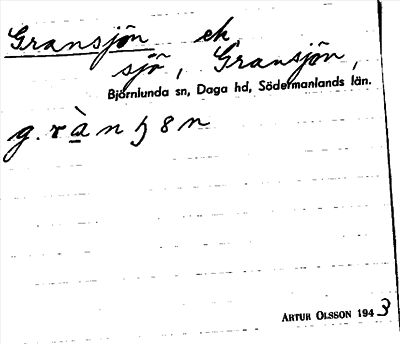 Gransjön ek
sjö, Gransjön,
Björnlunda sn, Daga hd, Södermanlands län.
ARTUR OLSSON 1943